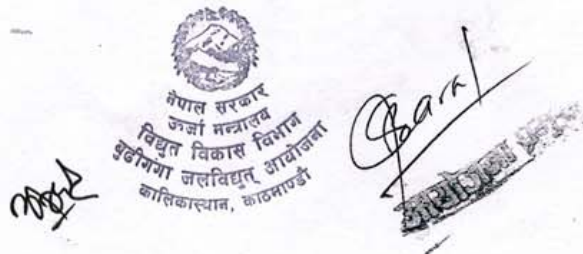 नेपाल सरकार
ऊर्जा मन्त्रालय
विद्युत विकास विभाग
बुढीगंगा जलविद्युत् आयोजना
कालिकास्थान, काठमाण्डौ
आयोजना प्रमुख